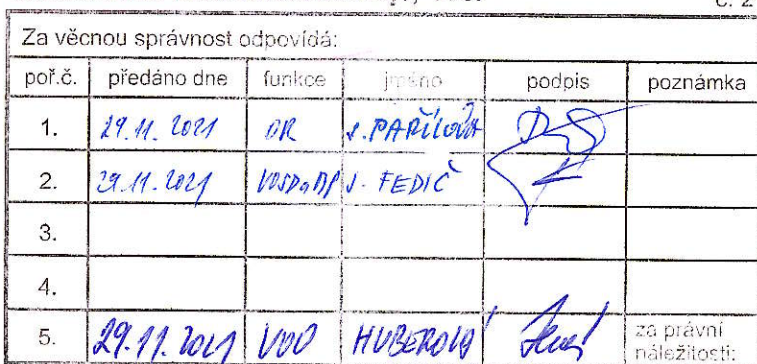 č. 2
Za věcnou správnost odpovídá:
poř.č. předáno dne funkce jméno podpis poznámka
1. 29.11.2021 OR J. PAŘÍLOVÁ
2. 29.11.2021 J. FEDIČ
3.
4.
5. 29.11.2021 VOO HUBEROVÁ za právní
náležitosti: